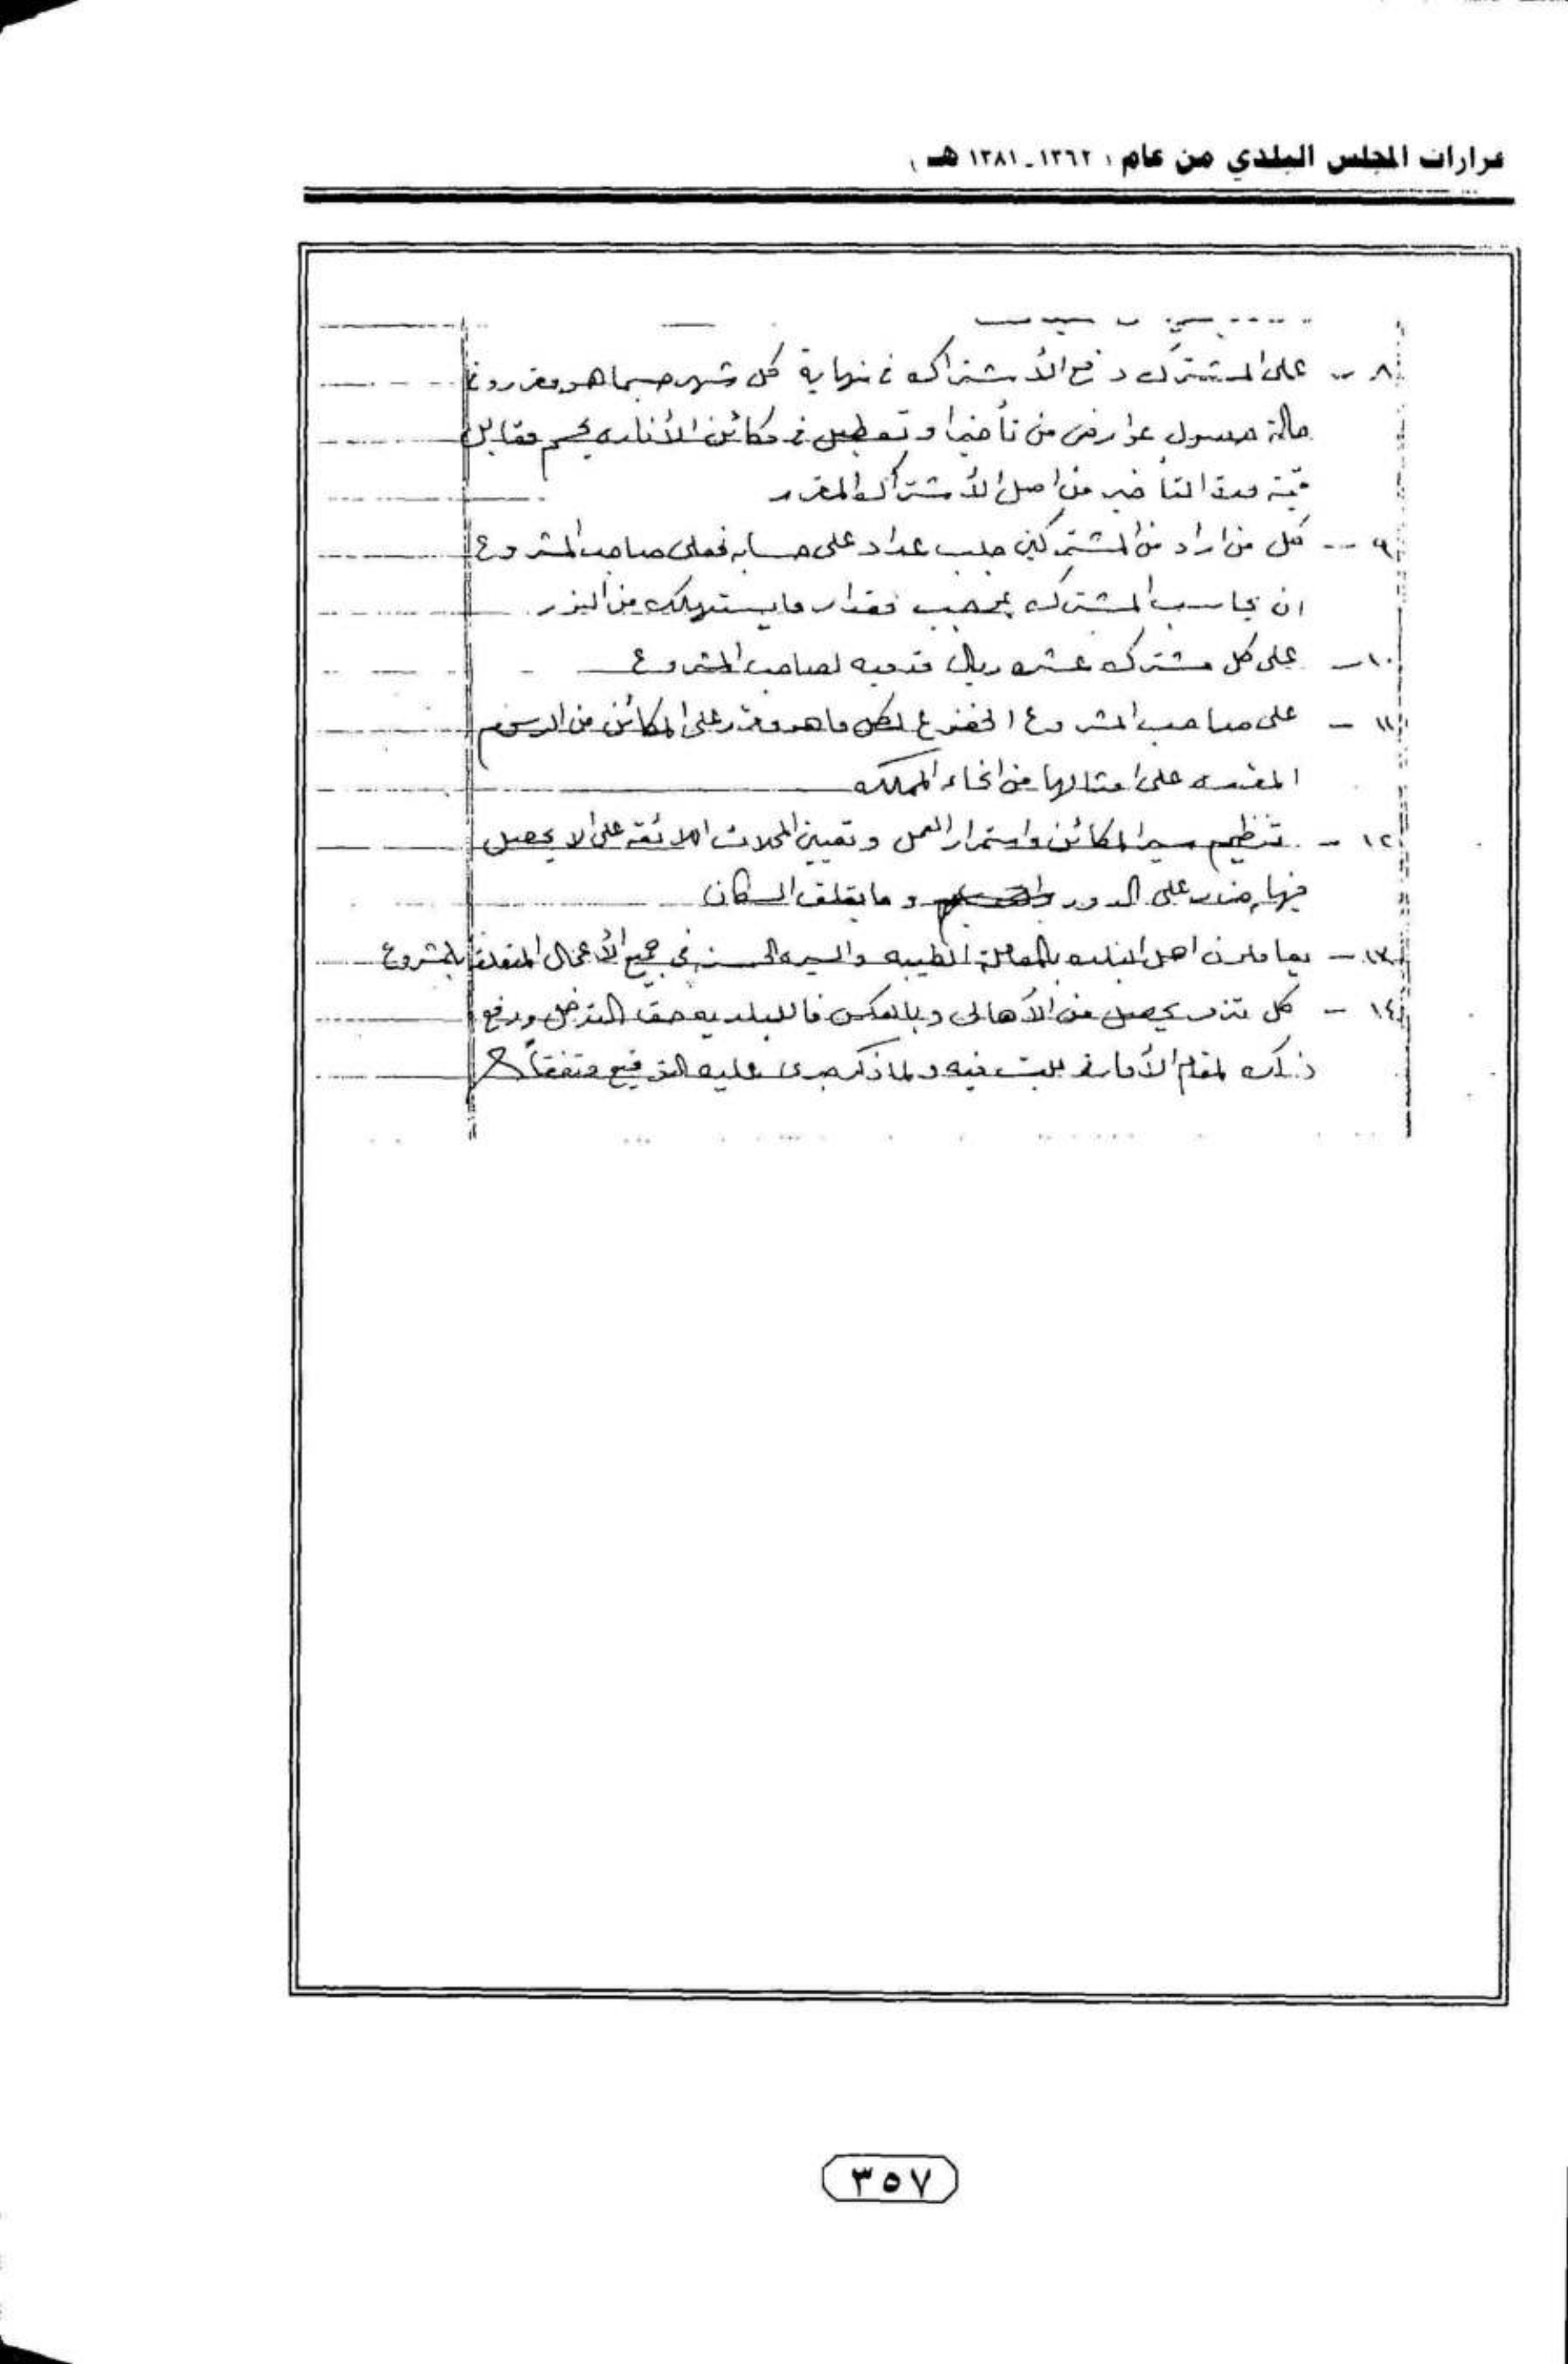 قرارات المجلس البلدي من عام (١٣٦٢ـ١٣٨١هـ)
٨ - على المشترك دفع الأشتراك في نهاية كل شهر حسبما هو مقرر وفي
حالة حصول عوارض من تأخير او تعطيل في مكائن الأناره يحسم مقابل
قيمة مدة التأخير من اصل الأشتراك المقرر
٩ - كل من اراد من المشتركين جلب عداد على حسابه فعلى صاحب المشروع
ان يحاسب المشترك بموجب مقدار ما يستهلكه من النور
١٠ - على كل مشترك عشره ريال قدميه لصاحب المشروع
١١ - على صاحب المشروع الخضوع لكل ما هو مقرر على المكائن من الرسوم
المقرره على امثالها من انحاء المملكه
١٢ - تنظيم سير المكائن واستمرار العمل وتعيين المحلات اللائقه على الا يحصل
فيها ضرر على الدور و ما يقلق السكان
١٣ - يعاملون اهل البلده بالمعاملة الطيبه والسيره الحسنه في جميع الأعمال المتعلقة بالمشروع
١٤ - كل تذمر يحصل من الأهالى وبالعكس فاللبلديه حق التدخل ورفع
ذلك لمقام الأمارة للبت فيه ولما ذكر جرى عليه التوقيع متفقاً
٣٥٧